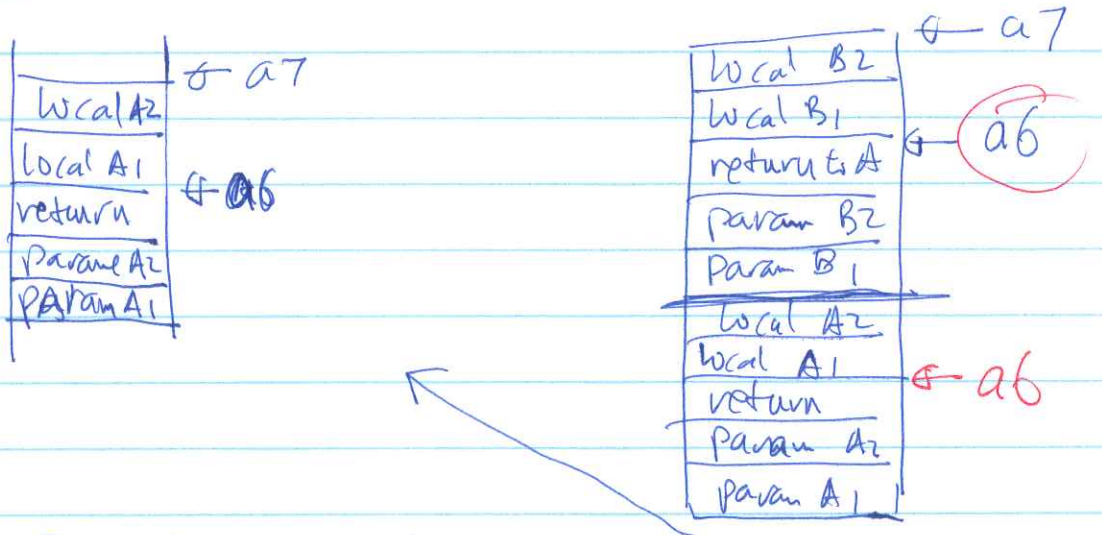 ← a7
local A2
local A1
← a6
return
Parame A2
pAram A1
← a7
local B2
local B1
← a6
return to A
param B2
Param B1
local A2
local A1
← a6
return
param A2
param A1